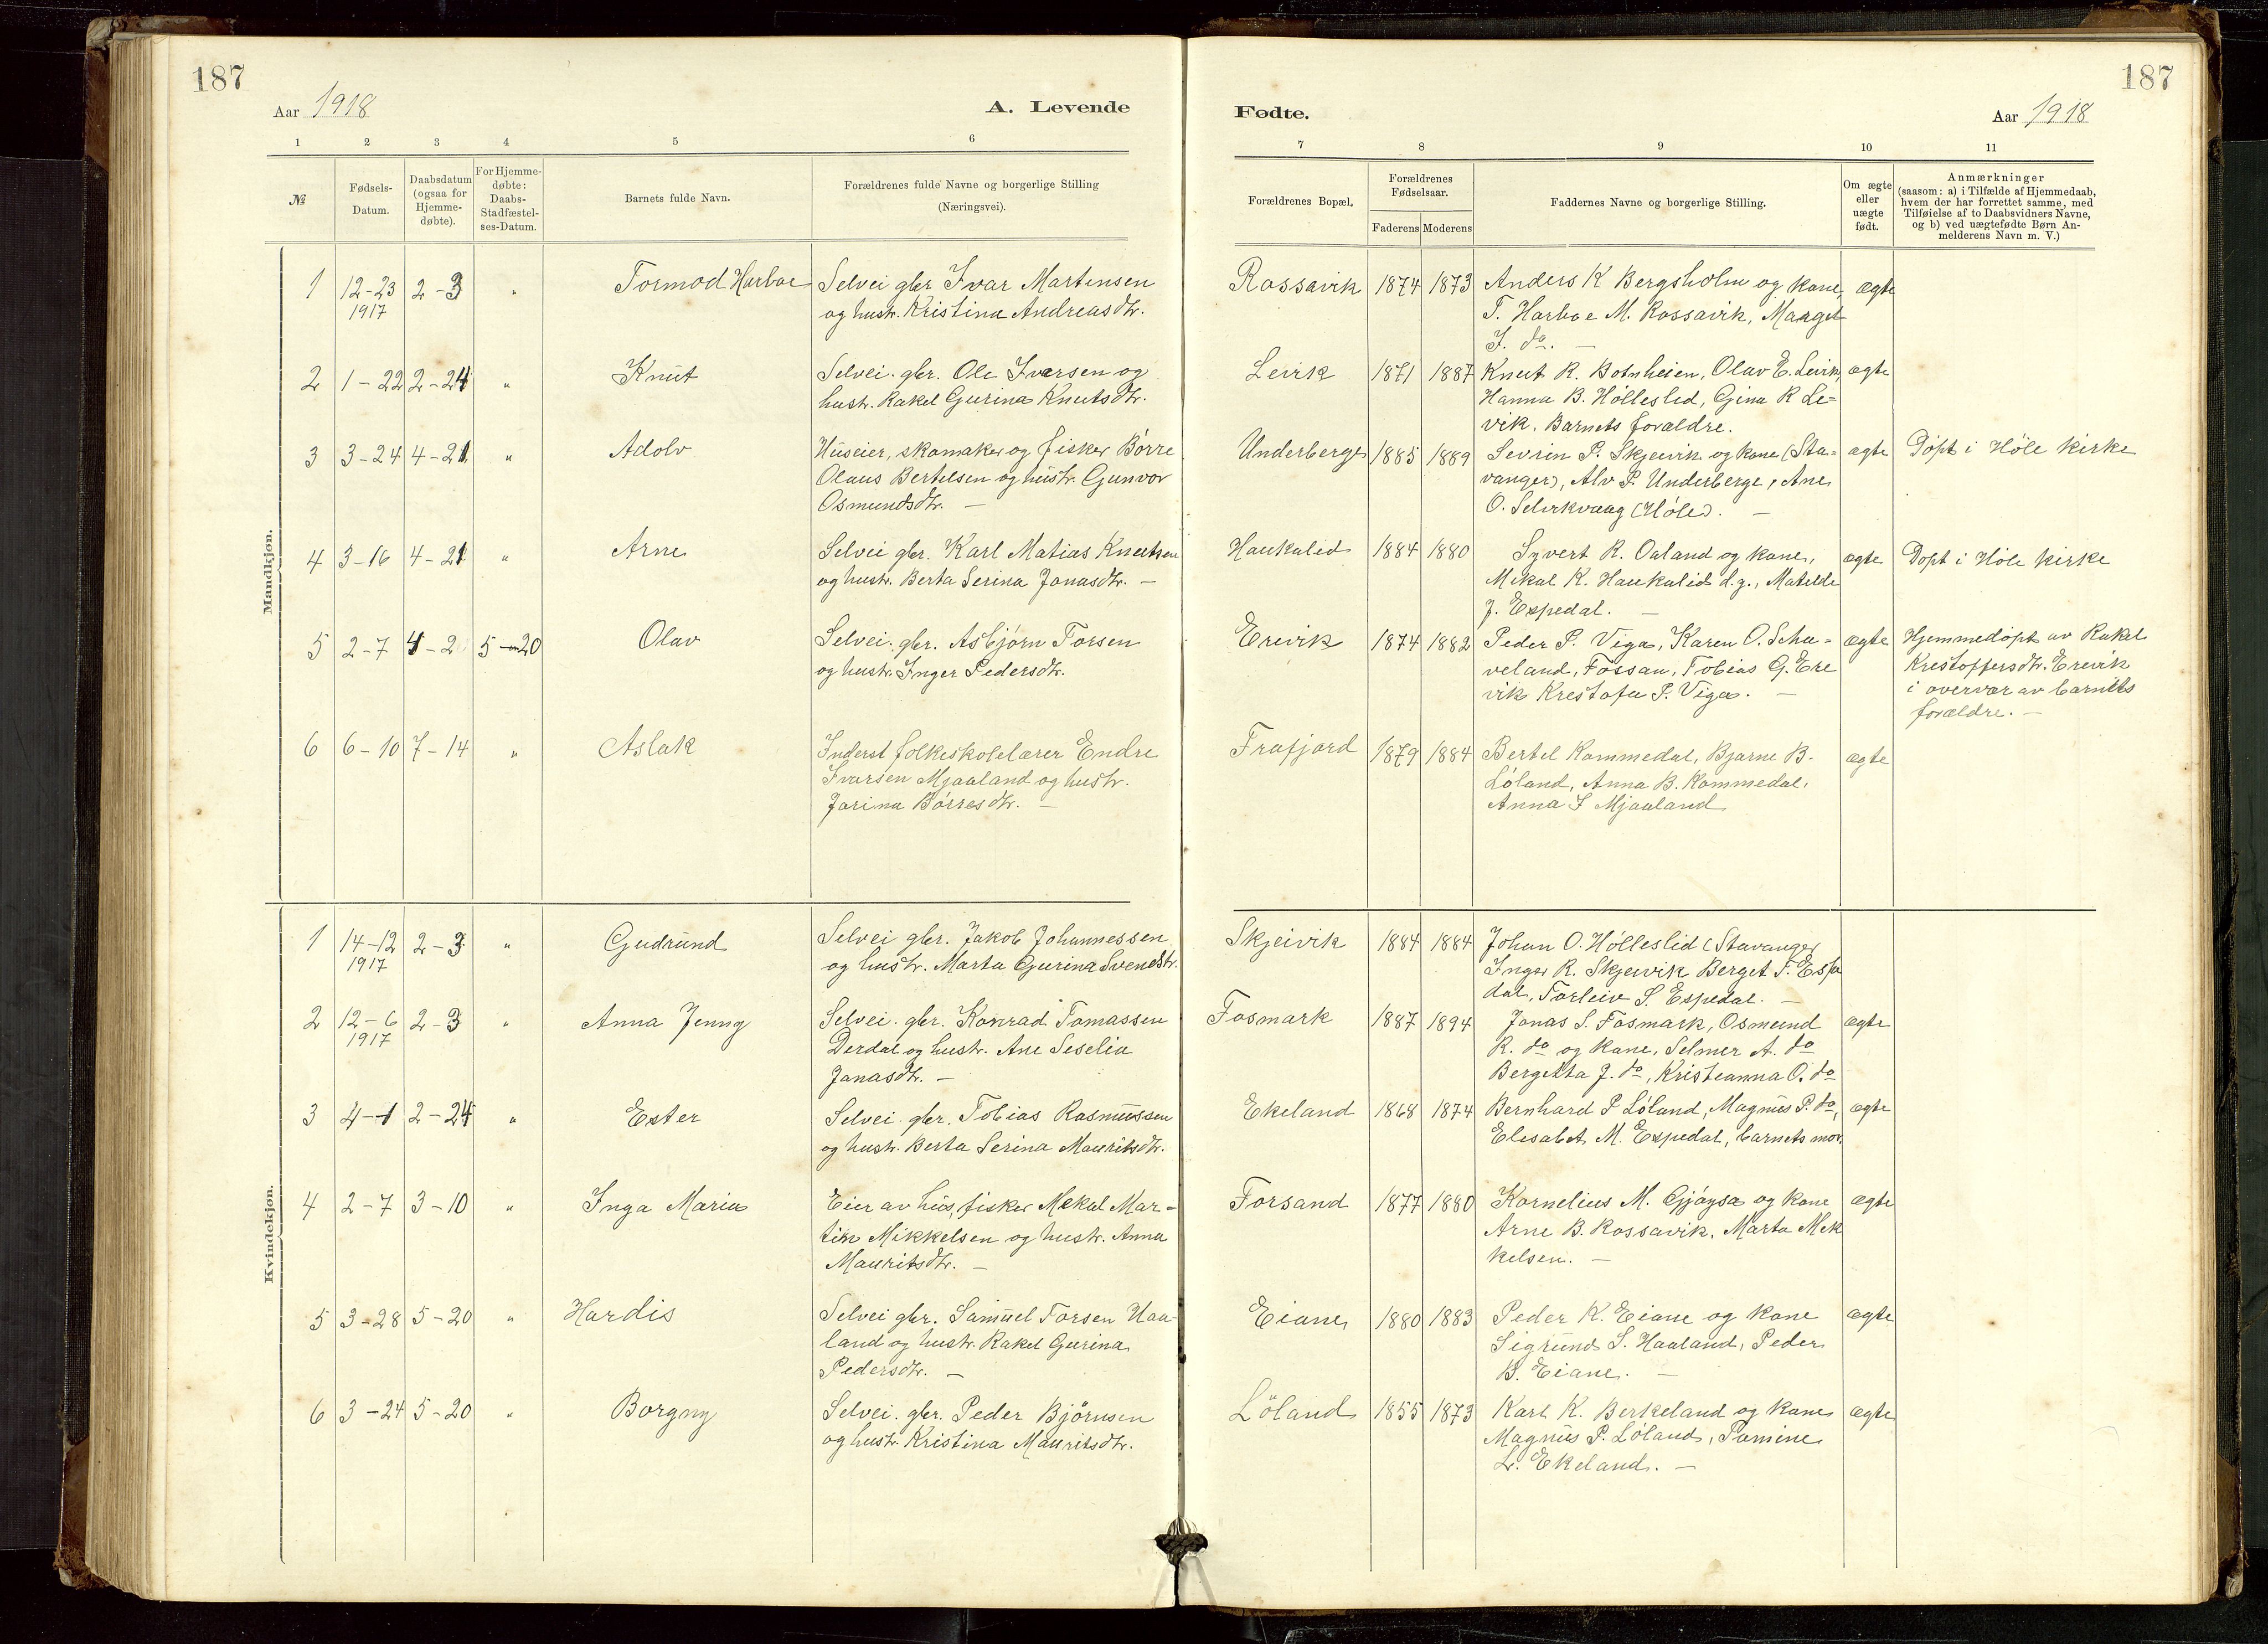 187
Aar 1918
A. Levende
1 2 3 4 5 6
№
Fødsels-
Datum.
Daabsdatum
(ogsaa for
Hjemme-
døbte).
For Hjemme-
døbte:
Daabs-
Stadfæstel-
ses-Datum.
Barnets fulde Navn.
Forældrenes fulde Navne og borgerlige Stilling
(Næringsvei).
Mandkjøn.
1 12-23 2-3 " Tormod Harboe Selvei gbr. Ivar Martinsen
1917 og hustr. Kristina Andreasdtr.
2 1-22 2-24 " Knut Selvei. gbr. Ole Iversen og
hustr. Rakel Gurina Knutsdtr.
3 3-24 4-21 " Adolv Huseier, skomaker og fisker Børre
Olaus Bertelsen og hustr. Gunvor
Osmundsdtr. —
4 3-16 4-21 " Arne Selvei gbr. Karl Matias Knutsen
og hustr. Berta Serina Jonasdtr. —
5 2-7 4-2 5-20 Olav Selvei. gbr. Asbjørn Torsen
og hustr. Inger Pedersdtr.
6 6-10 7-14 " Aslak Inderst folkeskolelærer Endre
Ivarsen Mjaaland og hustr.
Jorina Børresdtr. —
Kvindekjøn.
1 14-12 2-3 " Gudrund Selvei gbr. Jakob Johannessen
1917 og hustr. Marta Gurina Svendsdtr.
2 12-6 2-3 " Anna Jenny Selvei. gbr. Konrad Tomassen
1917 Derdal og hustr. Ane Seselia
Jonasdtr. —
3 4-1 2-24 " Ester Selvei. gbr. Tobias Rasmussen
og hustr. Berta Serina Mauritsdtr.
4 2-7 3-10 " Inga Maria Eier av hus, fisker Mekal Mar-
tin Mikkelsen og hustr. Anna
Mauritsdtr. —
5 3-28 5-20 " Hardis Selvei gbr. Samuel Torsen Haa-
land og hustr. Rakel Gurina
Pedersdtr. —
6 3-24 5-20 " Borgny Selvei. gbr. Peder Bjørnsen
og hustr. Kristina Mauritsdtr.
187
Fødte.
Aar 1918
7 8 9 10 11
Forældrenes Bopæl.
Forældrenes
Fødselsaar.
Faderens Moderens
Faddernes Navne og borgerlige Stilling.
Om ægte
eller
uægte
født.
Anmærkninger
(saasom: a) i Tilfælde af Hjemmedaab,
hvem der har forrettet samme, med
Tilføielse af to Daabsvidners Navne,
og b) ved uægtefødte Børn An-
melderens Navn m. V.)
Rossavik 1874 1873 Anders K Bergsholm og kone, ægte
T. Harboe M. Rossavik, Marget
I. do. —
Levik 1871 1887 Knut R. Botnheien, Olav E. Leivik, ægte
Hanna B. Hølleslid, Gina R Le-
vik, Barnets forældre.
Underberge 1885 1889 Sevrin P. Skjeivik og kone (Sta- ægte Døpt i Høle kirke
vanger), Alv P. Underberge, Ane
O. Selvikvaag (Høle). —
Haukalid 1884 1880 Syvert R. Oaland og kone, ægte Døpt i Høle kirke
Mikal K. Haukalid d.y., Matilde
J. Espedal. —
Erevik 1874 1882 Peder P. Viga, Karen O. Scha- ægte Hjemmedøpt av Rakel
veland, Fossan, Tobias G. Ere Krestoffersdtr. Erevik
vik Krestofa P. Viga. — i overvær av barnets
forældre. —
Frafjord 1879 1884 Bertel Kommedal, Bjarne B. ægte
Løland, Anna B. Kommedal,
Anna I Mjaaland
Skjeivik 1884 1884 Johan O. Hølleslid (Stavanger
Inger R. Skjeivik Berget T. Espe
dal, Torleiv S. Espedal. —
Fosmark 1887 1894 Jonas S. Fosmark, Osmund ægte
R. do og kone, Selmer A. do
Bergetta J. do, Kristeanna O. do
Ekeland 1868 1874 Bernhard P Løland, Magnus P. do, ægte
Elesabet M. Espedal, barnets mor
Forsand 1877 1880 Kornelius M. Gjøysa og kone ægte
Arne B. Rossavik, Marta Mek
kelsen. —
Eiane 1880 1883 Peder K. Eiane og kone ægte
Sigrund S. Haaland, Peder
B. Eiane. —
Løland 1855 1873 Karl K. Berkeland og kone ægte
Magnus P. Løland, Tomine
L. Ekeland. —